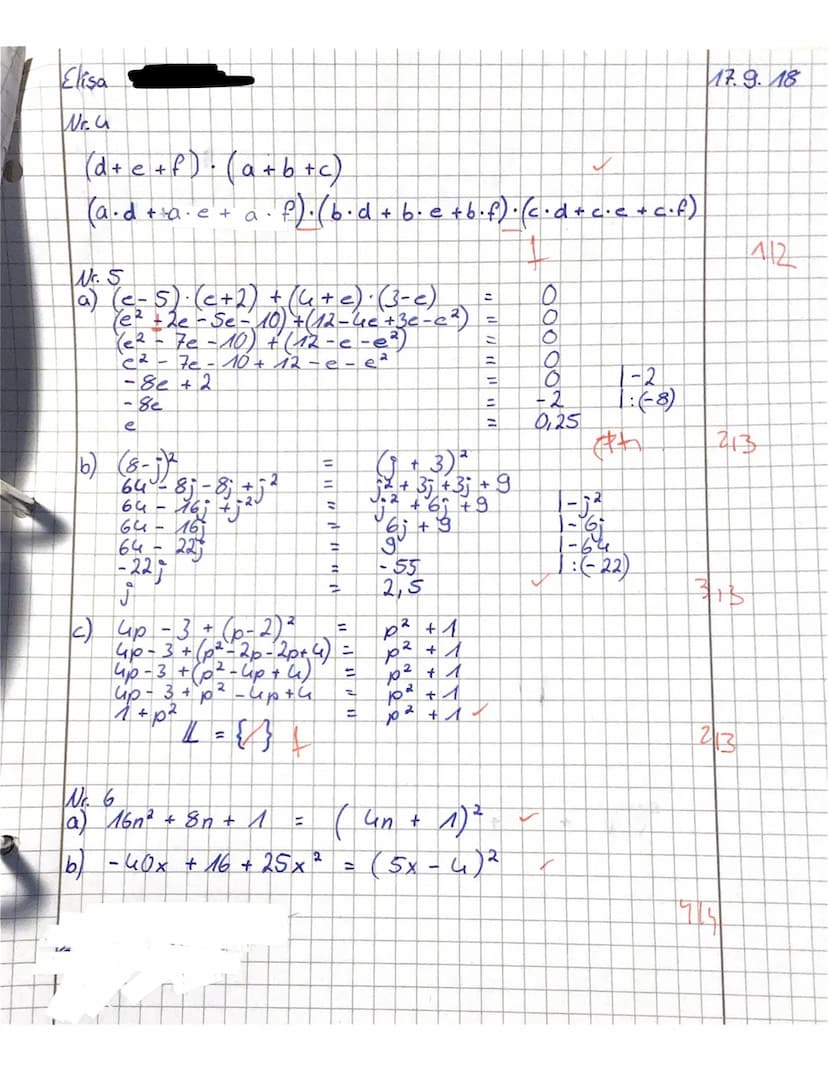 Elisa 17.9.18
Nr. 4
(d + e + f) · (a + b + c) ✓
(a·d + a·e + a·f)·(b·d + b·e + b·f)·(c·d + c·e + c·f)
f 1/2
Nr. 5
a) (e - 5)·(e + 2) + (4 + e)·(3 - e) = 0
(e² + 2e - 5e - 10) + (12 - 4e + 3e - e²) = 0
(e² - 7e - 10) + (12 - e - e²) = 0
e² - 7e - 10 + 12 - e - e² = 0
-8e + 2 = 0 | -2
-8e = -2 | :(-8)
e = 0,25
2/3
b) (8 - j)² = (j + 3)²
64 - 8j - 8j + j² = j² + 3j + 3j + 9
64 - 16j + j² = j² + 6j + 9 | -j²
64 - 16j = 6j + 9 | -6j
64 - 22j = 9 | -64
-22j = -55 | :(-22)
j = 2,5 ✓ 3/3
c) 4p - 3 + (p - 2)² = p² + 1
4p - 3 + (p² - 2p - 2p + 4) = p² + 1
4p - 3 + (p² - 4p + 4) = p² + 1
4p - 3 + p² - 4p + 4 = p² + 1
1 + p² = p² + 1 ✓
𝕃 = {/} f 2/3
Nr. 6
a) 16n² + 8n + 1 = (4n + 1)² ✓
b) -40x + 16 + 25x² = (5x - 4)² ✓
4/4